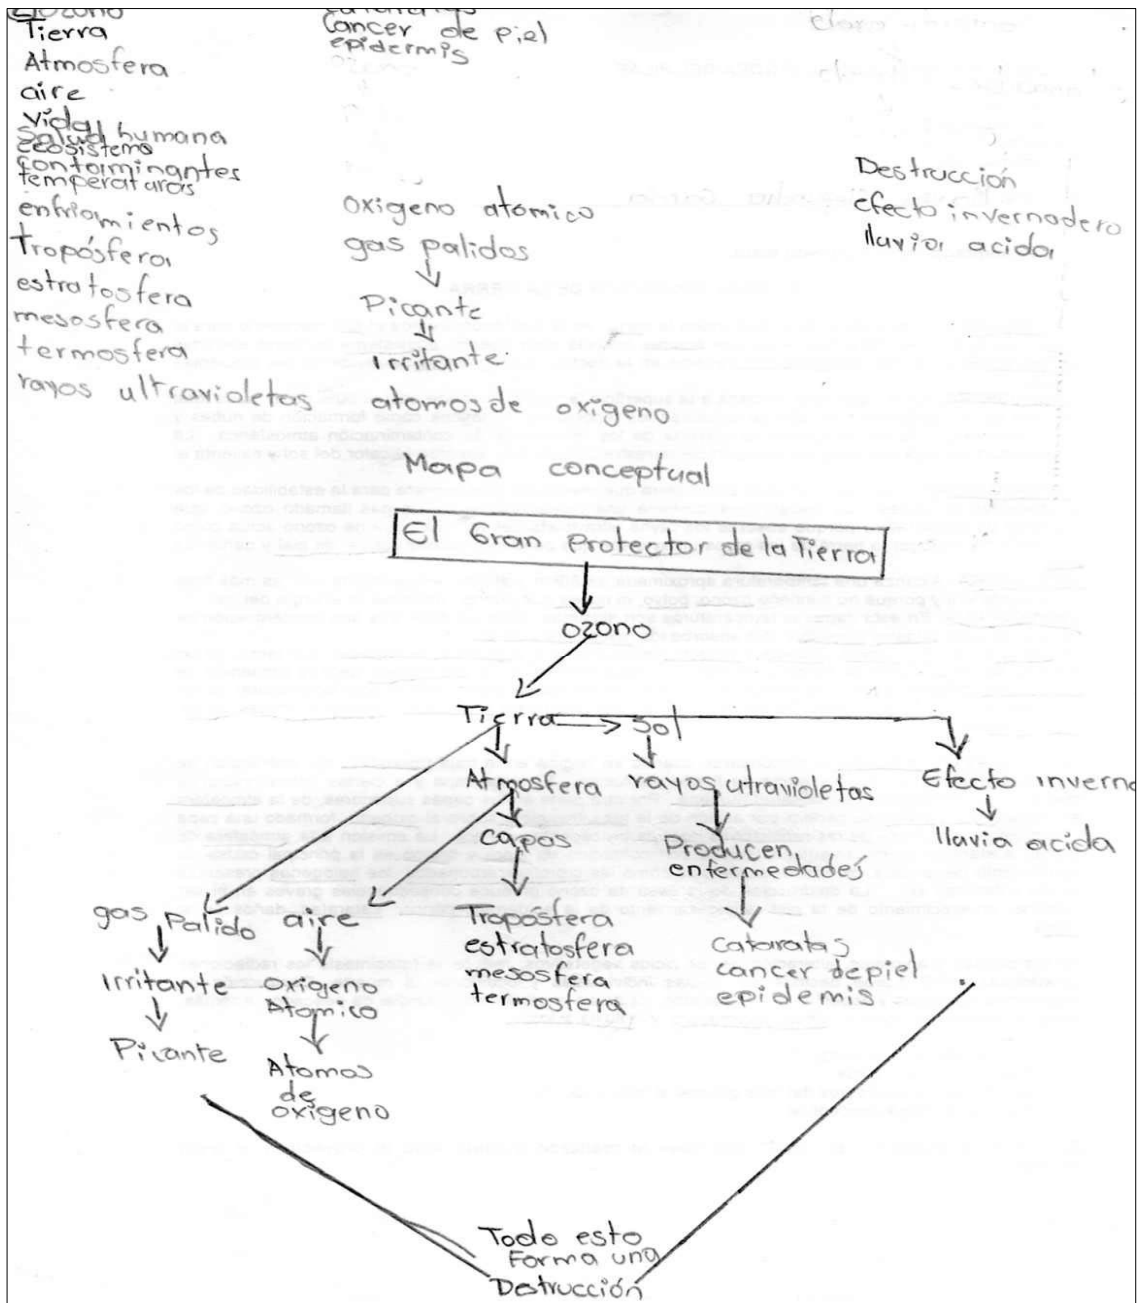 El ozono
Tierra
Atmosfera
aire
vida
salud humana
ecosistema
contaminantes
temperaturas
enfriamientos
Tropósfera
estratosfera
mesosfera
termosfera
rayos ultravioletas
cataratas
Cancer de piel
epidermis
oxigeno atomico
gas palidos
Picante
irritante
atomos de oxigeno
Destrucción
efecto invernadero
lluvia acida
Mapa conceptual
El Gran Protector de la Tierra
ozono
Tierra
Sol
Atmosfera
rayos utravioletas
Efecto inverna
capas
Producen
enfermedades
lluvia acida
gas Palido
aire
Tropósfera
estratosfera
mesosfera
termosfera
cataratas
cancer de piel
epidemis
Irritante
oxigeno
Atomico
Picante
Atomos
de
oxigeno
Todo esto
Forma una
Destrucción